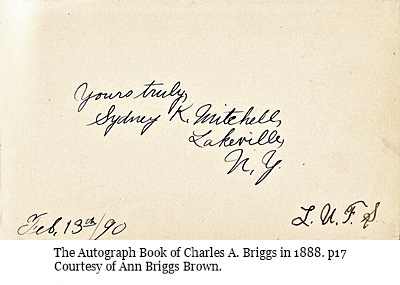 Yours truly,
Sydney K. Mitchell,
Lakeville,
N. Y.
Feb. 13th/90
L. U. F. S
The Autograph Book of Charles A. Briggs in 1888. p17
Courtesy of Ann Briggs Brown.